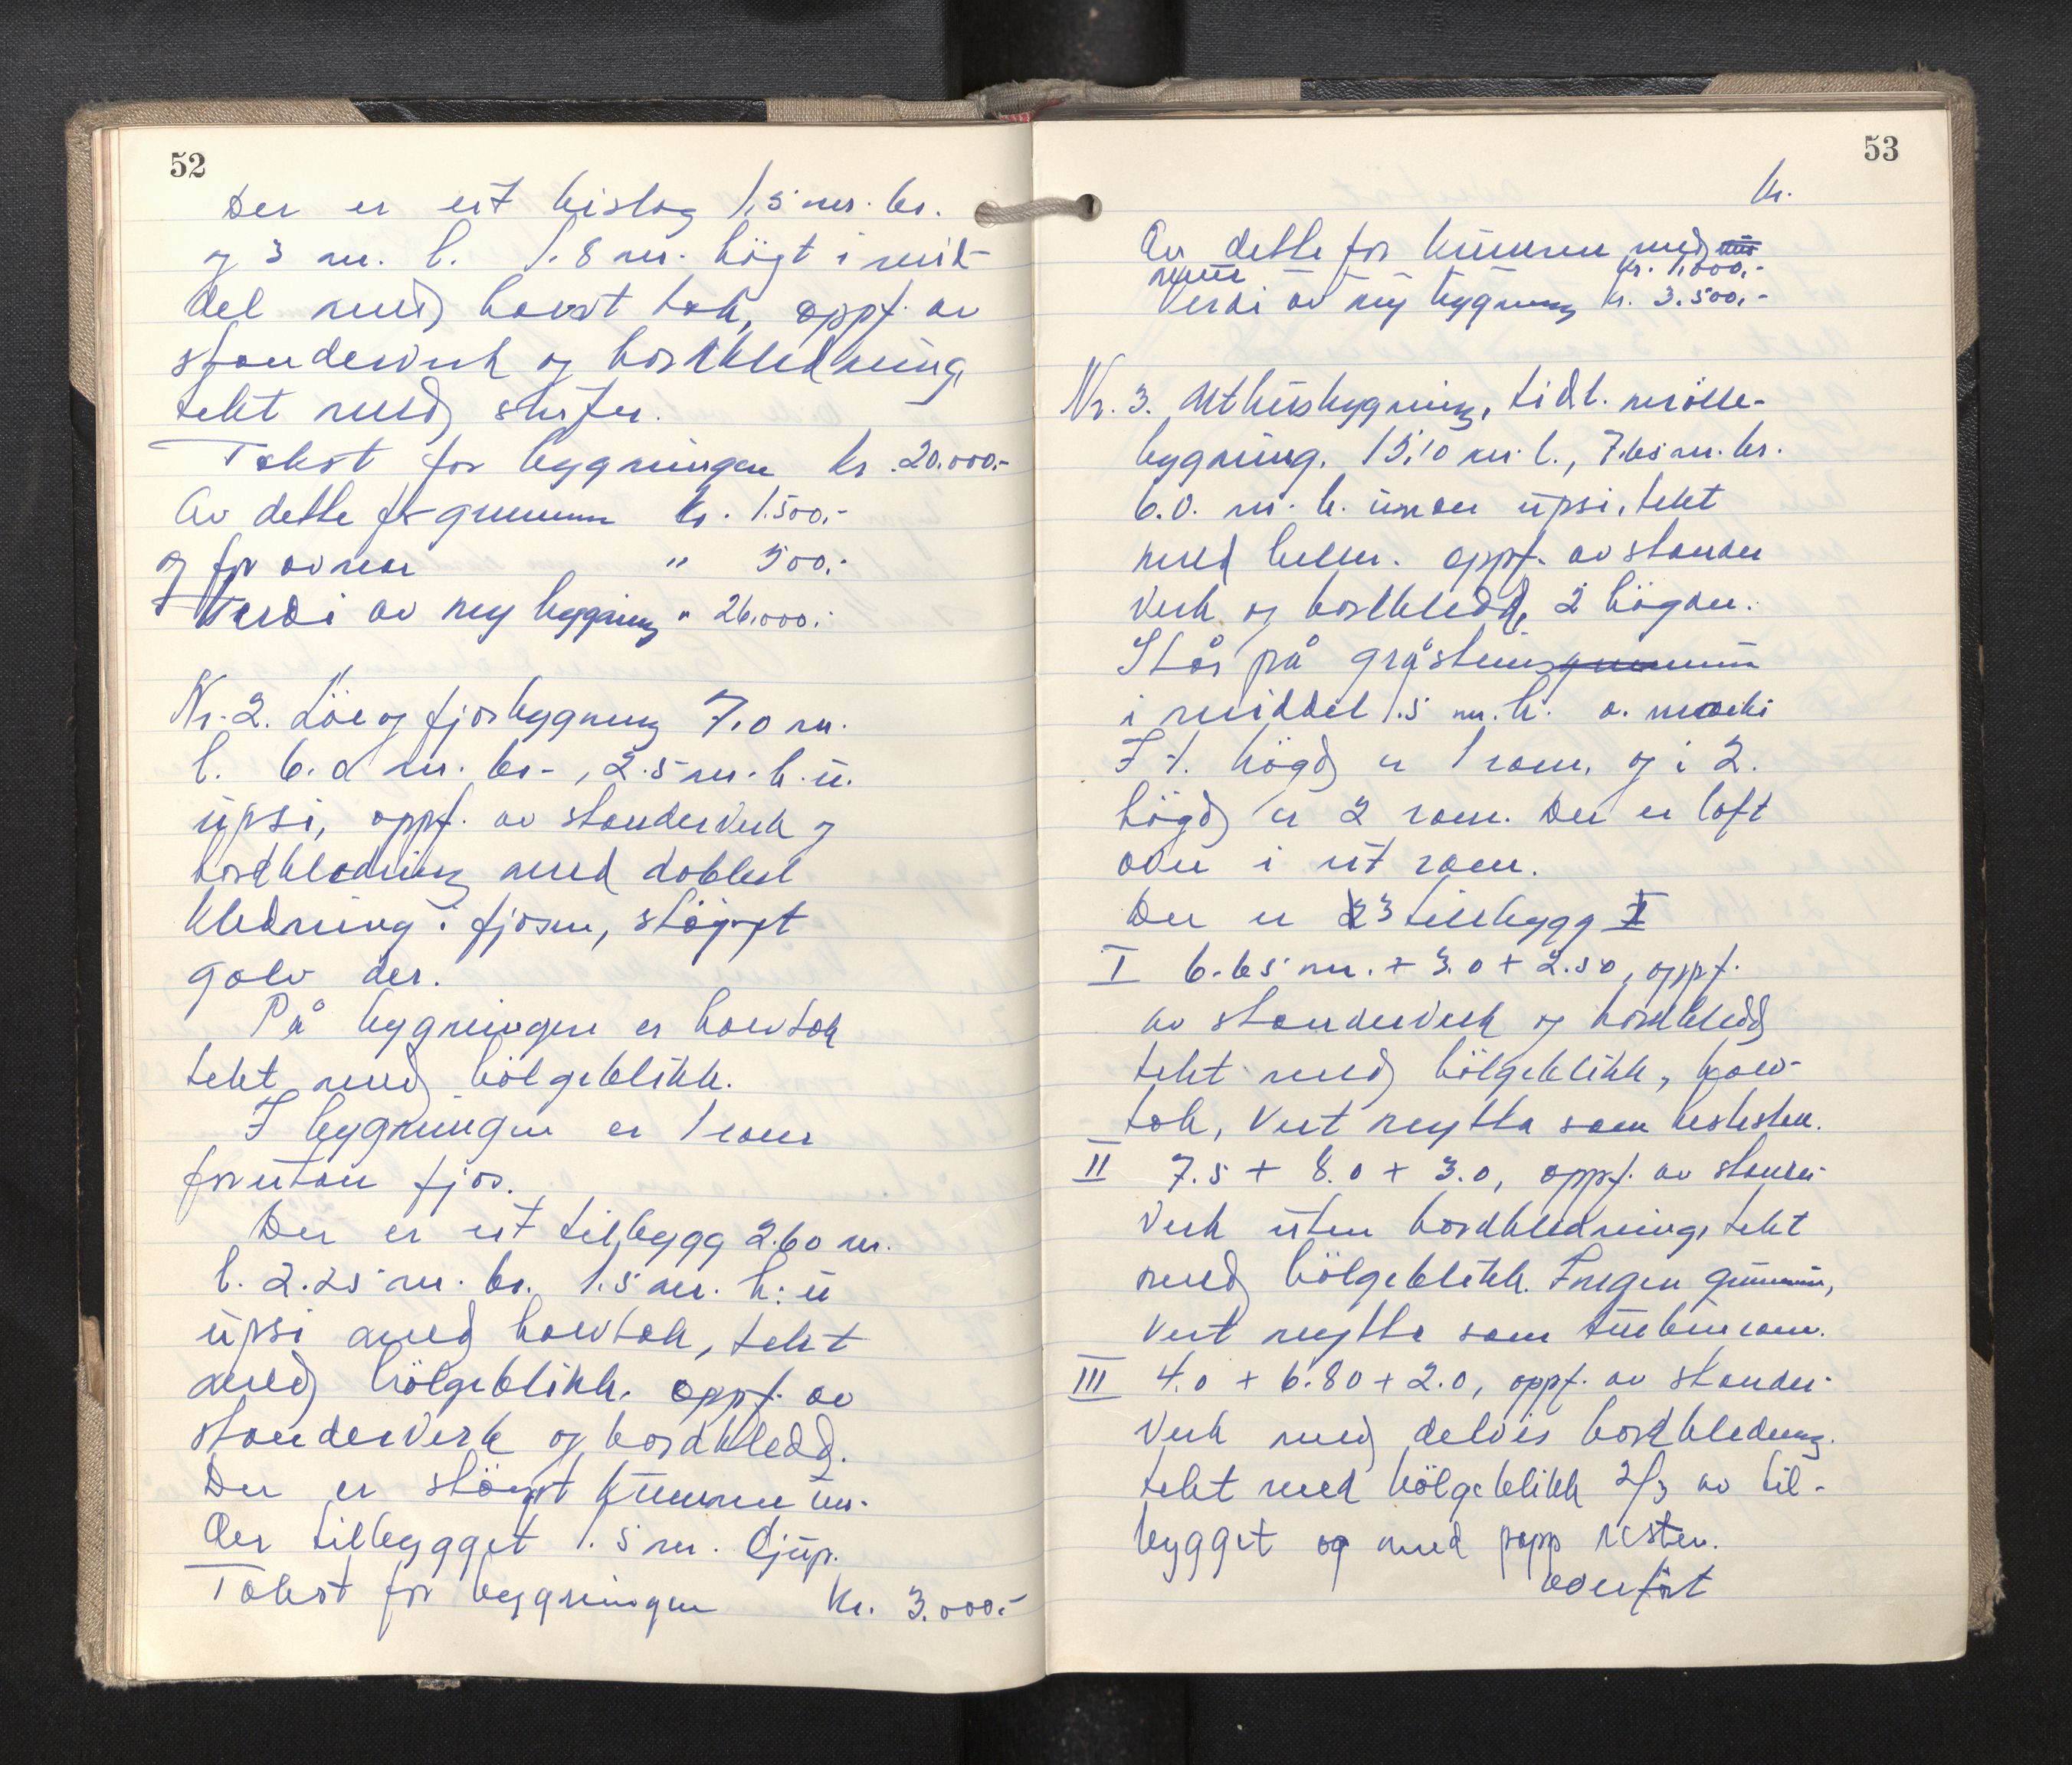 52
Der er eit bislag 1.5 m. br.
og 3 m. l. 1.8 m. högt i mid-
del med tak, oppf. av
standerverk og bordkledning
tekt med skifer.
Takst for bygningen kr. 20.000.-
Av dette for grunnmur kr. 1.500.-
og for avnar " 500.-
Verdi av ny bygning " 26.000.-
Nr. 2. Löe og fjosbygning 7.0 m.
l. 6.0 m. br., 2.5 m. h. u.
upsi, oppf. av standerverk og
bordkledning med dobbel
kledning i fjosen, stöypt
golv der.
På bygningen er halvtak
tekt med bölgeblikk.
I bygningen er 1 rom
forutan fjos.
Der er eit tilbygg 2.60 m.
l. 2.25 m. br. 1.5 m. h. u
upsi med halvtak, tekt
med bölgeblikk. oppf. av
standerverk og bordkledd.
Der er stöypt kummen un-
der tilbygget 1.5 m. djup.
Takst for bygningen kr. 3.000.-
53
kr.
Av dette for kummen med
mur kr. 1.000.-
Verdi av ny bygning kr. 3.500.-
Nr. 3. Uthusbygning, tidl. mölle-
bygning. 15.10 m. l., 7.65 m. br.
6.0. m. h. under upsi, tekt
med heller. oppf. av stander
verk og bordkledd, 2 högder.
Står på gråsteinsgrunnmur
i middel 1.5 m. h.
I 1. högd er 1 rom, og i 2.
högd er 2 rom. Der er loft
over i eit rom.
Der er 3 tillbygg
I 6.65 m. + 3.0 + 2.50, oppf.
av standerverk og bordkledd
tekt med bölgeblikk, halv-
tak, Vert nytta som
II 7.5 + 8.0 + 3.0, oppf. av stander-
verk uten bordkledning, tekt
med bölgeblikk. Ingen grunnmur,
Vert nytta som turbinrom.
III 4.0 + 6.80 + 2.0, oppf. av stander-
verk med delvis bordkledning.
tekt med bölgeblikk 2/3 av til-
bygget og med papp resten.
overfört